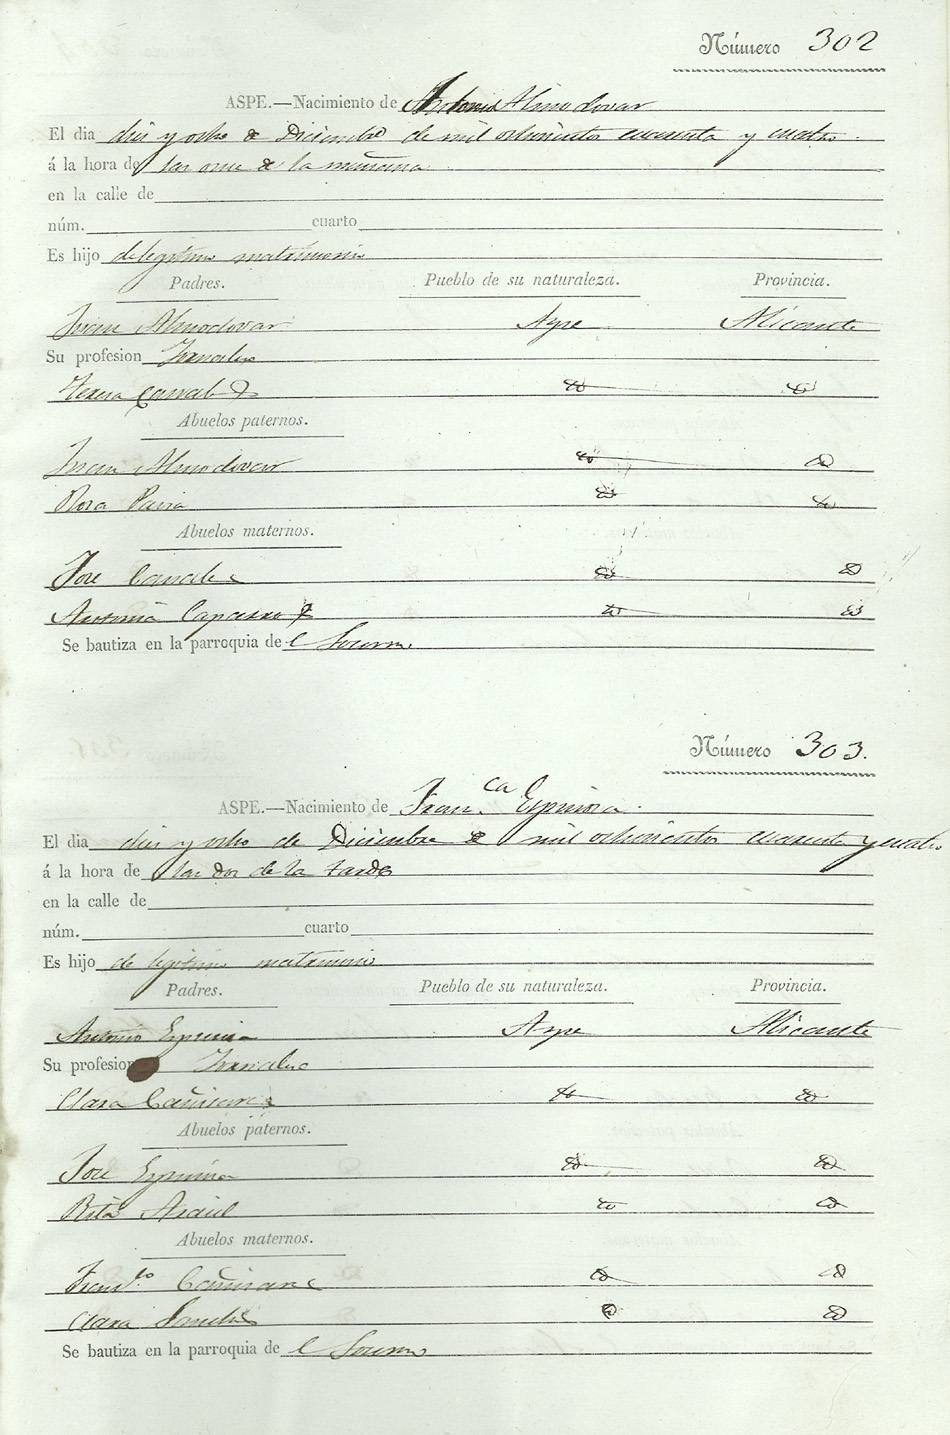 Número 302
ASPE.—Nacimiento de Antonio Almodovar
El dia dies y ocho de Diciembre de mil ochocientos cuarenta y cuatro
á la hora de las once de la mañana
en la calle de
núm. cuarto
Es hijo de legitimo matrimonio
Padres. Pueblo de su naturaleza. Provincia.
Juan Almodovar Aspe Alicante
Su profesion Jornalero
Teresa
Abuelos paternos.
Juan Almodovar
Rosa
Abuelos maternos.
Jose
Antonia
Se bautiza en la parroquia de el Socorro
Número 303.
ASPE.—Nacimiento de Fran.ca Espinosa.
El dia dies y ocho de Diciembre de mil ochocientos cuarenta y cuatro
á la hora de las dos de la tarde
en la calle de
núm. cuarto
Es hijo de legitimo matrimonio
Padres. Pueblo de su naturaleza. Provincia.
Antonio Espinosa Aspe Alicante
Su profesion Jornalero
Clara Cañizares
Abuelos paternos.
Jose Espinosa
Rita
Abuelos maternos.
Cañizares
Clara Sanches
Se bautiza en la parroquia de el Socorro